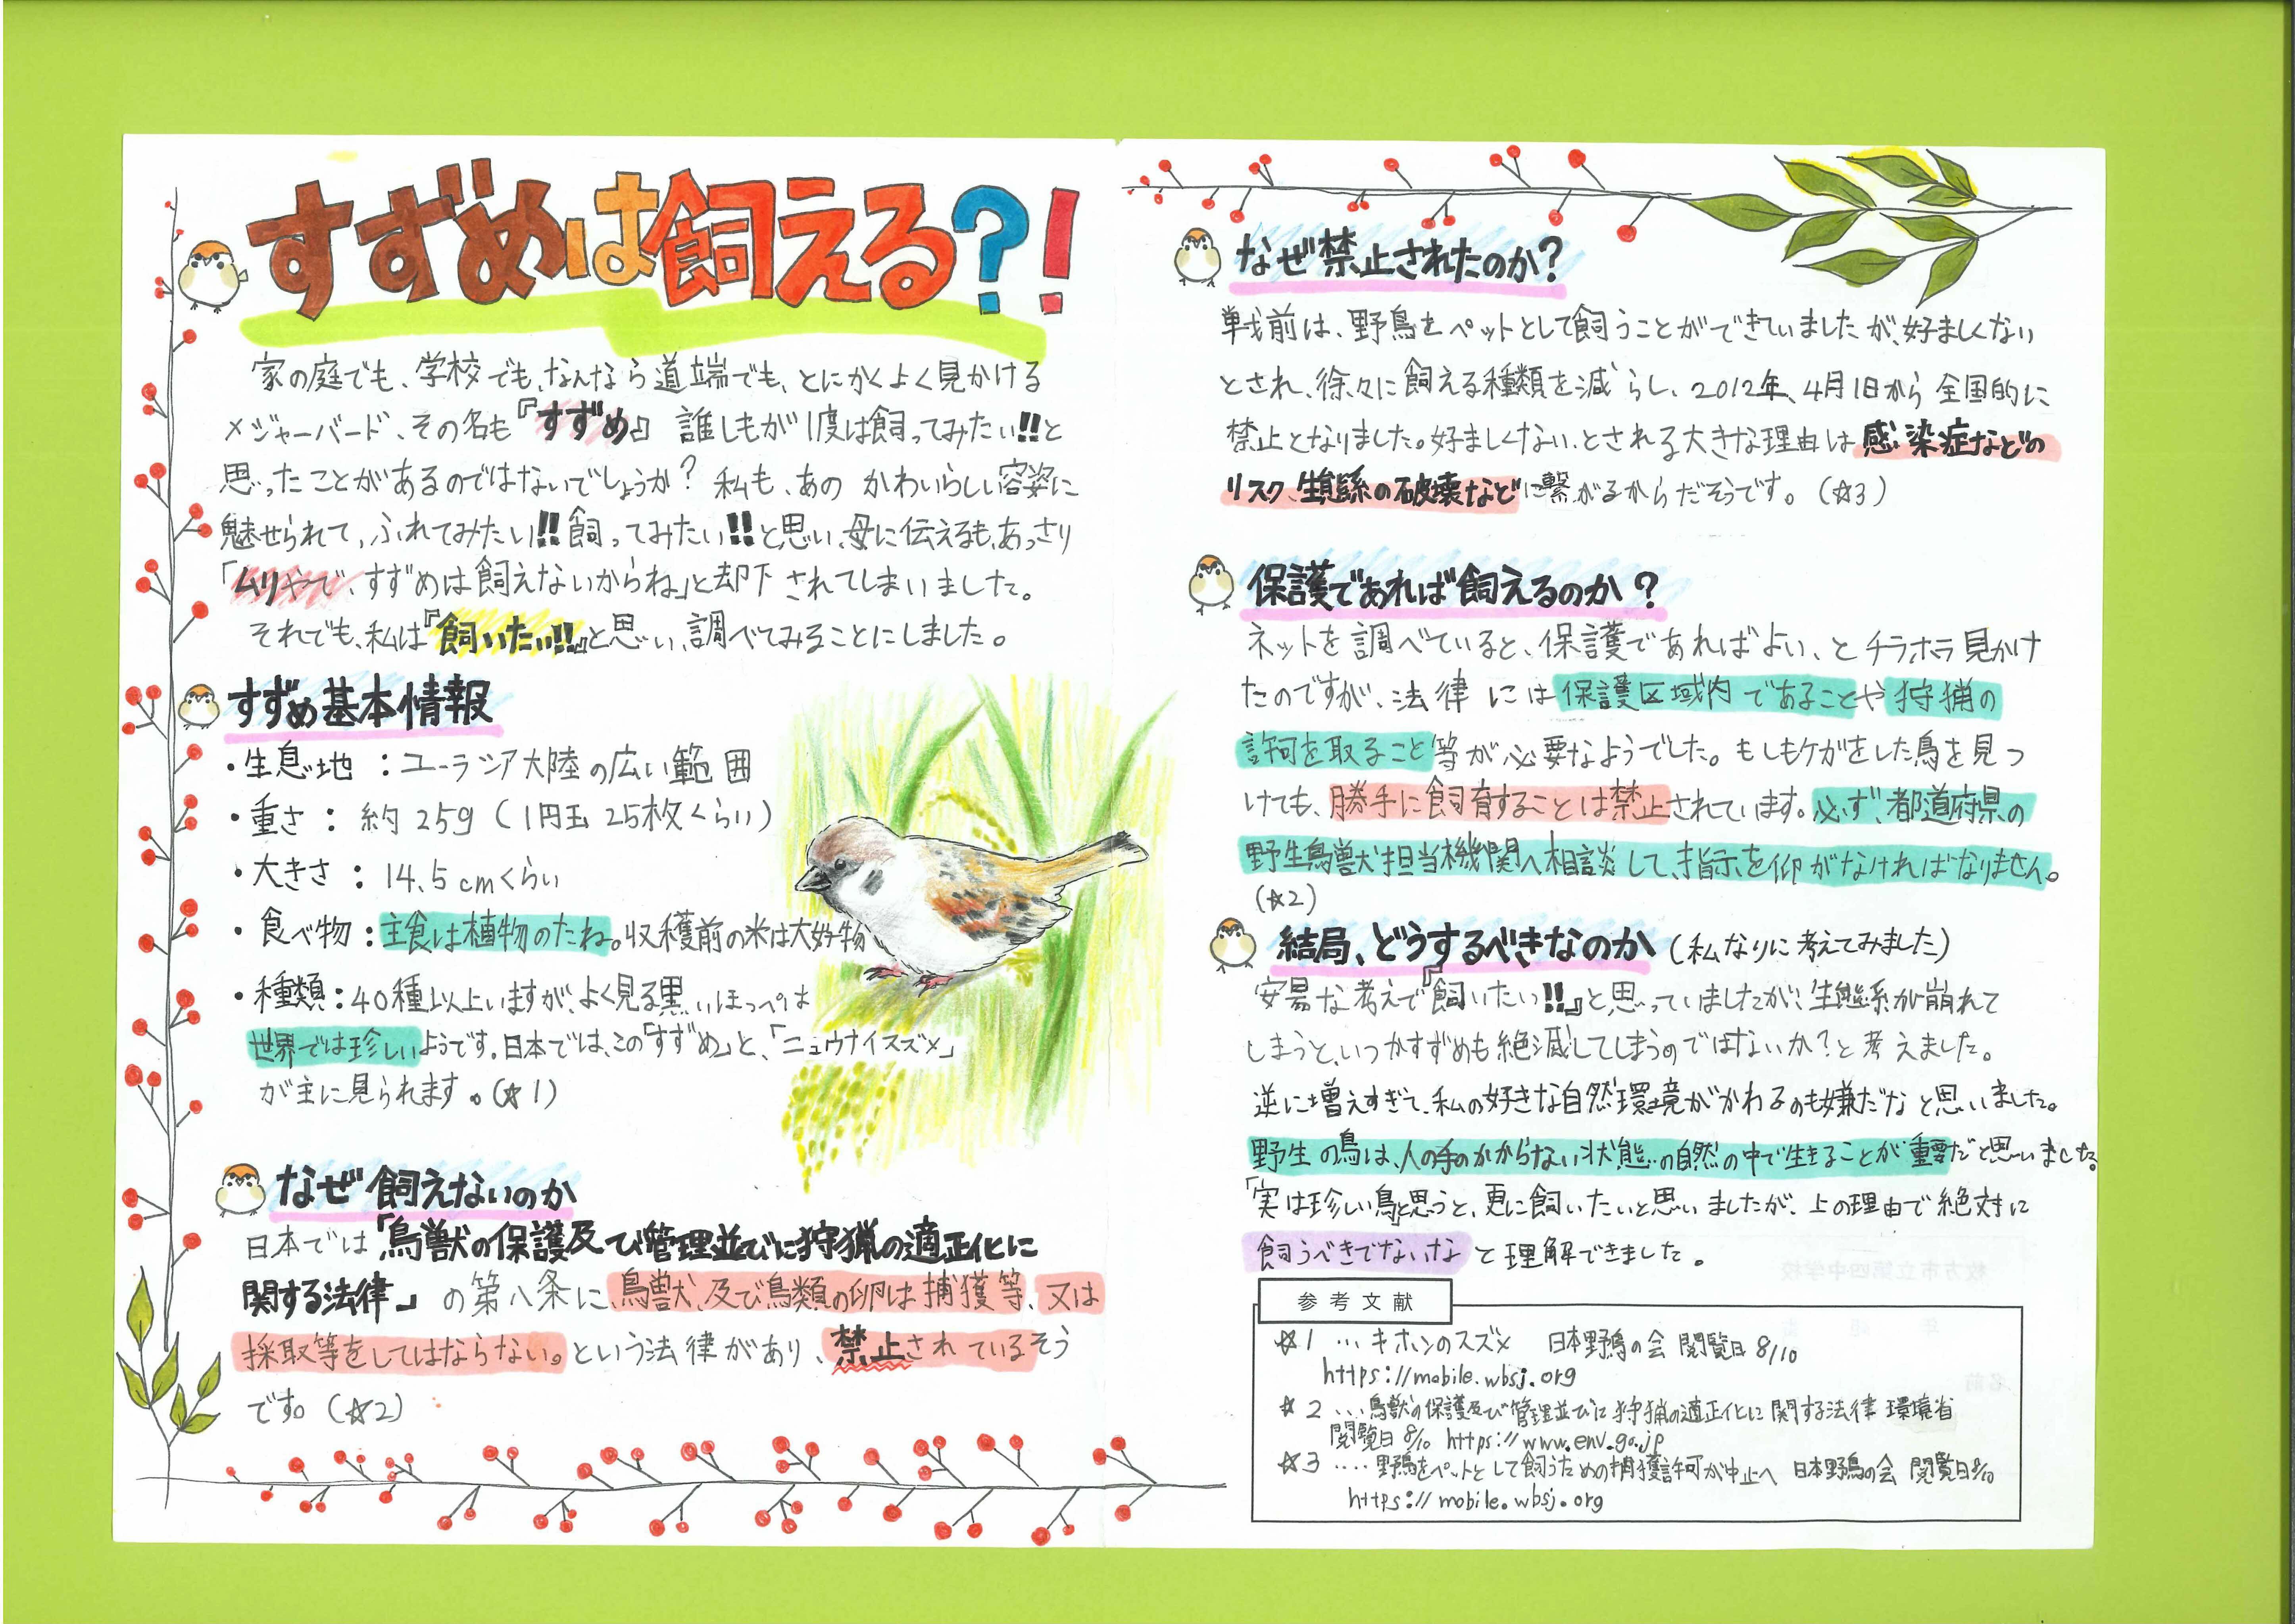 すずめは飼える?!
家の庭でも、学校でも、なんなら道端でも、とにかくよく見かける
メジャーバード、その名も『すずめ』 誰しもが1度は飼ってみたい!!と
思ったことがあるのではないでしょうか? 私も、あの かわいらしい容姿に
魅せられて、ふれてみたい!!飼ってみたい!!と思い、母に伝えるも、あっさり
「ムリやで、すずめは飼えないからね」と却下 されてしまいました。
それでも、私は『飼いたい!!』と思い、調べてみることにしました。
すずめ基本情報
・生息地 : ユーラシア大陸の広い範囲
・重さ : 約 25g (1円玉 25枚くらい)
・大きさ : 14.5cmくらい
・食べ物 : 主食は植物のたね。収穫前の米は大好物
・種類 : 40種以上いますが、よく見る黒いほっぺは
世界では珍しいようです。日本では、この「すずめ」と、「ニュウナイスズメ」
が主に見られます。(☆1)
なぜ飼えないのか
日本では「鳥獣の保護及び管理並びに狩猟の適正化に
関する法律」 の第八条に、鳥獣、及び鳥類の卵は捕獲等、又は
採取等をしてはならない。という法律があり、禁止されているそう
です。(☆2)
なぜ禁止されたのか?
戦前は、野鳥をペットとして飼うことができていましたが、好ましくない
とされ、徐々に飼える種類を減らし、2012年、4月1日から 全国的に
禁止となりました。好ましくない、とされる大きな理由は 感染症などの
リスク、生態系の破壊などに繋がるからだそうです。(☆3)
保護であれば飼えるのか?
ネットを調べていると、保護であればよい、とチラホラ見かけ
たのですが、法律には保護区域内であることや狩猟の
許可を取ること等が必要なようでした。もしもケガをした鳥を見つ
けても、勝手に飼育することは禁止されています。必ず、都道府県の
野生鳥獣担当機関へ相談して、指示を仰がなければなりません。
(☆2)
結局、どうするべきなのか(私なりに考えてみました)
安易な考えで『飼いたい!!』と思っていましたが、生態系が崩れて
しまうと、いつかすずめも絶滅してしまうのではないか?と考えました。
逆に増えすぎて、私の好きな自然環境がかわるのも嫌だなと思いました。
野生の鳥は、人の手のかからない状態の自然の中で生きることが重要だと思いました。
「実は珍しい鳥と思うと、更に飼いたいと思いましたが、上の理由で絶対に
飼うべきでないな と理解できました。
参考文献
☆1 … キホンのスズメ 日本野鳥の会 閲覧日 8/10
https://mobile.wbsj.org
☆2 … 鳥獣の保護及び管理並びに狩猟の適正化に関する法律 環境省
閲覧日 8/10 https://www.env.go.jp
☆3 …. 野鳥をペットとして飼うための捕獲許可が中止へ 日本野鳥の会 閲覧日8/10
https://mobile.wbsj.org